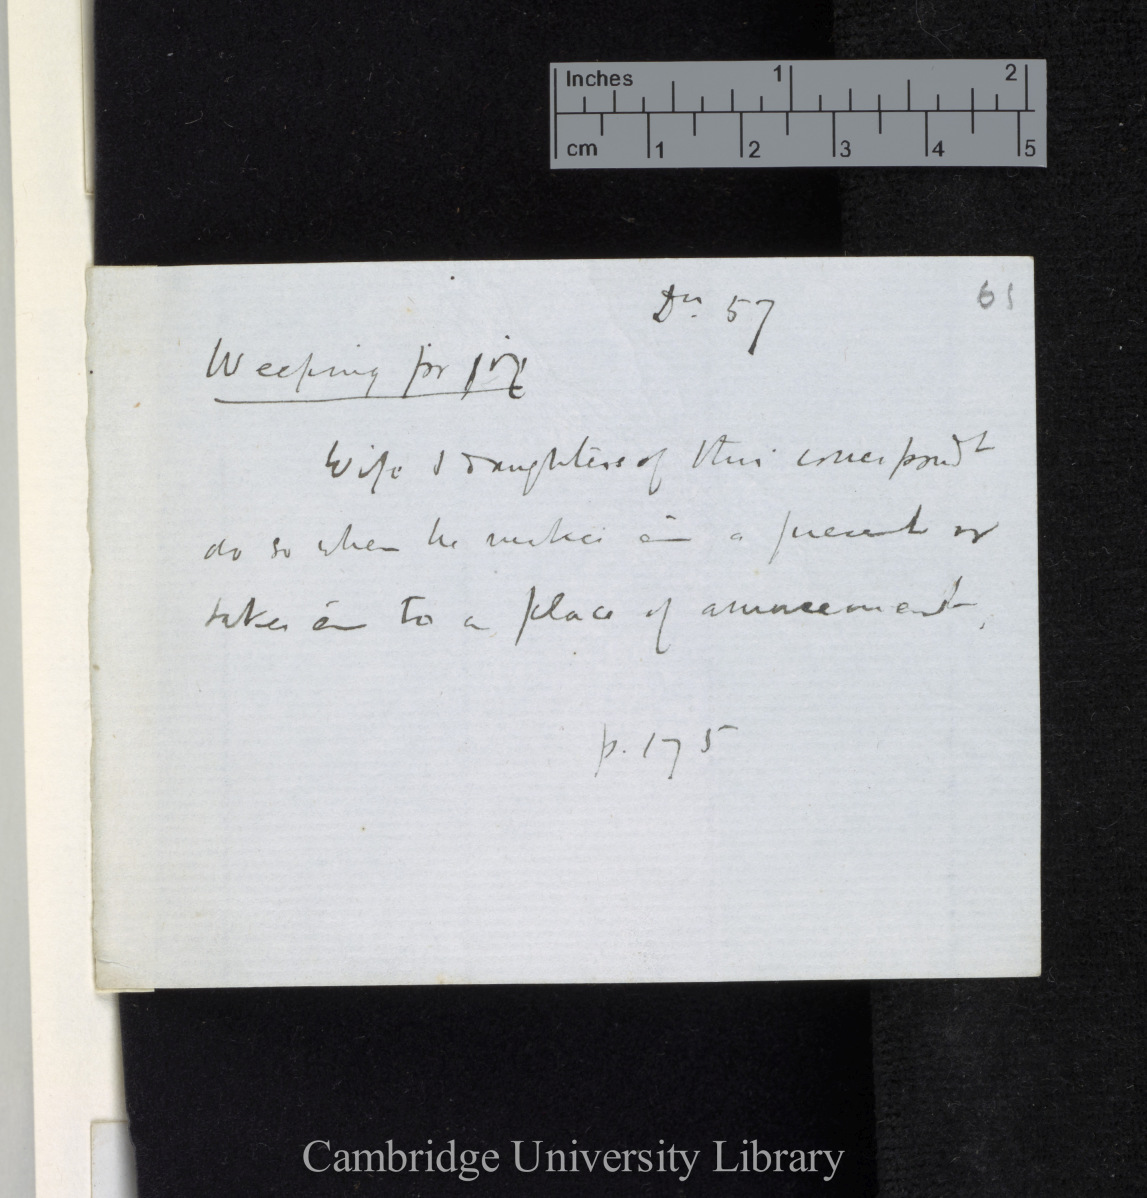 Inches 1 2
cm 1 2 3 4 5
61
57
Weeping for joy
Wife & daughters of this correspondt
do so when he makes em a present or
takes em to a place of amusement.
p. 175
Cambridge University Library